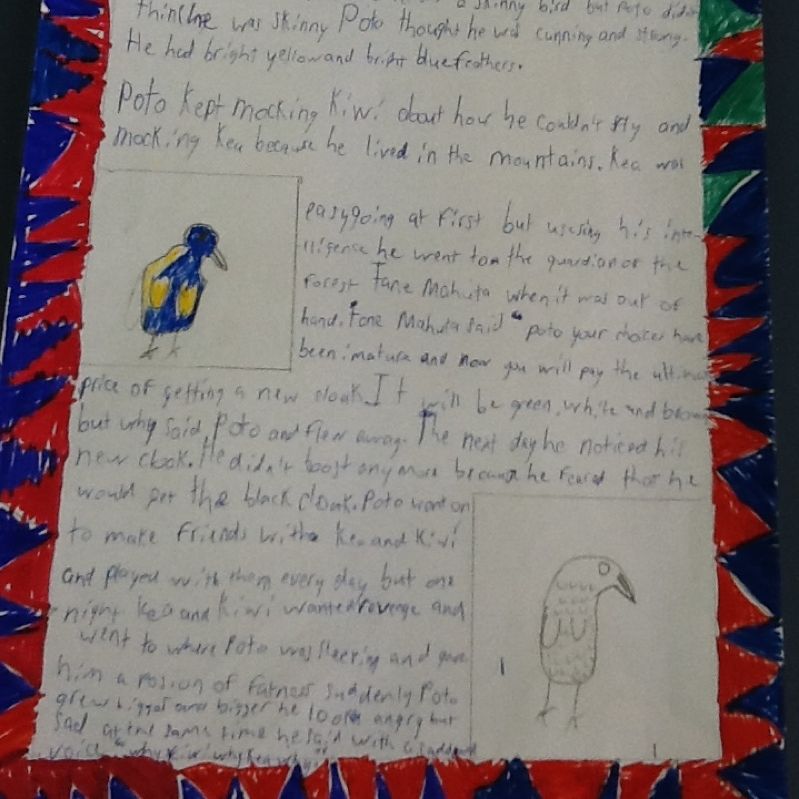 a skinny bird but Poto didn
think he was skinny Poto thought he was cunning and strong.
He had bright yellow and bright blue feathers.
Poto kept mocking Kiwi about how he couldn't fly and
mocking Kea because he lived in the mountains. Kea was
easygoing at first but useing his inte-
lligence he went to the guardian of the
forest Tane Mahuta when it was out of
hand. Tane Mahuta said "poto your choices have
been imature and now you will pay the ultima
price of getting a new cloak. It will be green, white and brown
but why said Poto and flew away. The next day he noticed his
new cloak. He didn't boost anymore because he feared that he
would get the black cloak. Poto went on
to make friends with Kea and Kiwi
and played with them every day but one
night Kea and Kiwi wanted revenge and
went to where Poto was sleeping and gave
him a posion of fatness suddenly Poto
grew bigger and bigger he look angry but
sad at the same time he said with a
voice "why Kiwi why Kea why"